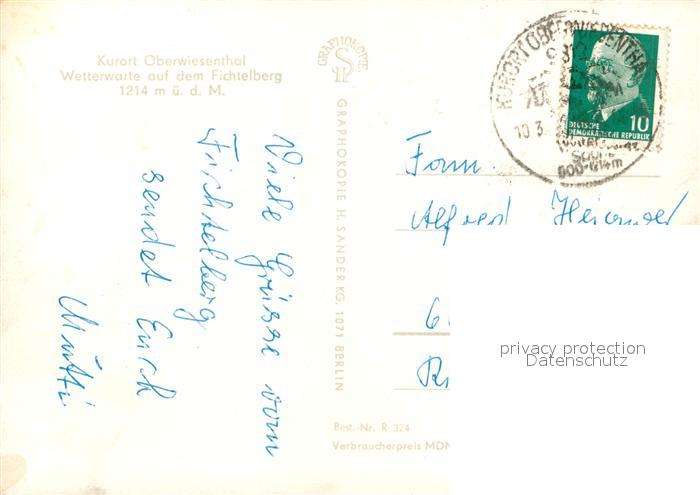 Kurort Oberwiesenthal
Wetterwarte auf dem Fichtelberg
1214 m ü. d. M.
Viele Grüsse vom
Fichtelberg
sendet Euch
Mutti
GRAPHOKOPIE
GRAPHOKOPIE H. SANDER KG, 1071 BERLIN
Best.-Nr. R 324
Verbraucherpreis MDN
KURORT OBERWIESENTHAL
10.3.
900-1214m
10
DEUTSCHE
DEMOKRATISCHE REPUBLIK
Fam.
Alfred
6
privacy protection
Datenschutz